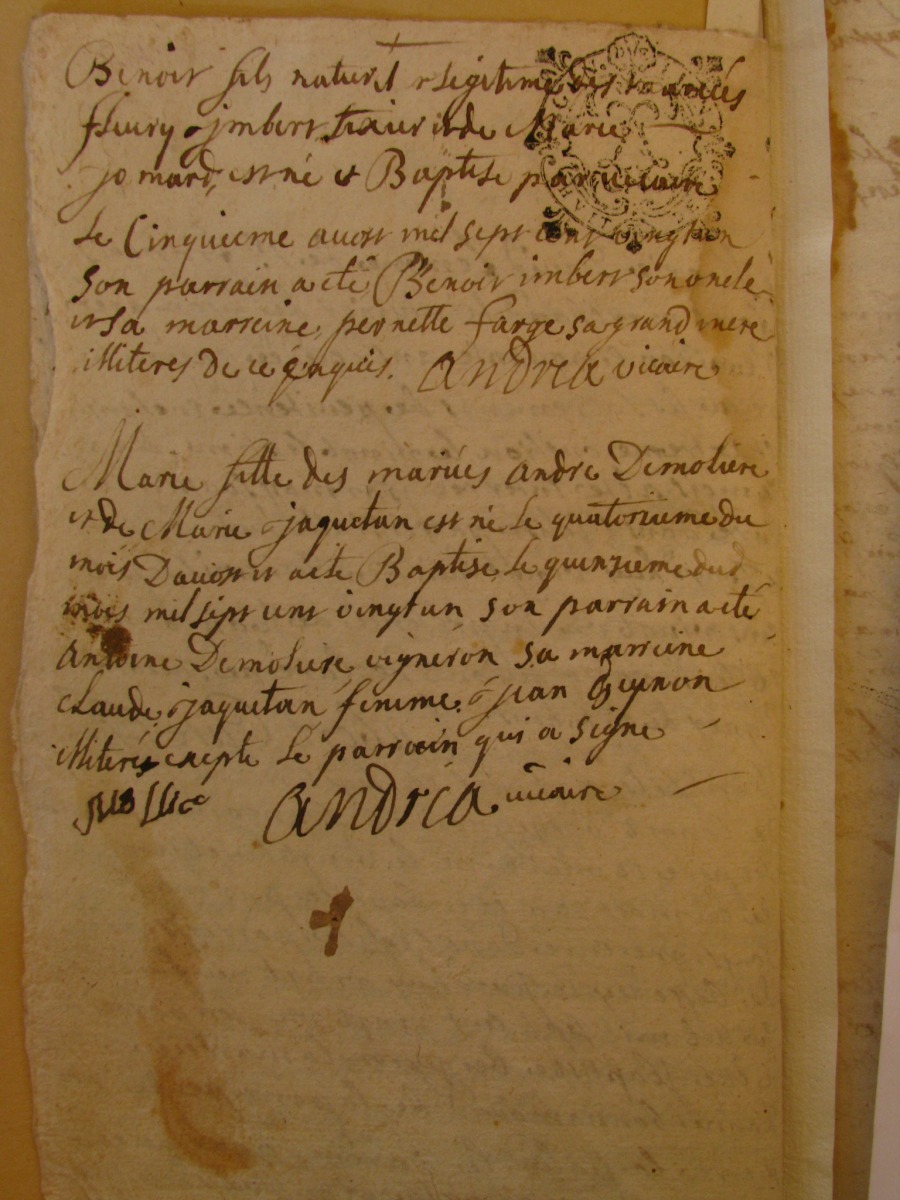 Benoit fils naturel et legitime des mariés
fleury imbert et de Marie
jomard, est né et Baptise par vicaire
Le Cinquieme auost mil sept cent vingt un
son parrain a eté Benoit imbert son oncle
et sa marreine pernette farge sa grand mere
illiteres de ce enquis. Andréa vicaire
Marie fille des mariées André Demoliere
et de Marie jaquetan est né Le quatorzieme du
mois Dauost et a eté Baptise Le quinzieme dud
mois mil sept cent vingt un son parrain a eté
Antoine Demoliere vigneron sa marreine
Claude jaquetan femme jean
illiterés excepte Le parrain qui a signe
Andréa vicaire